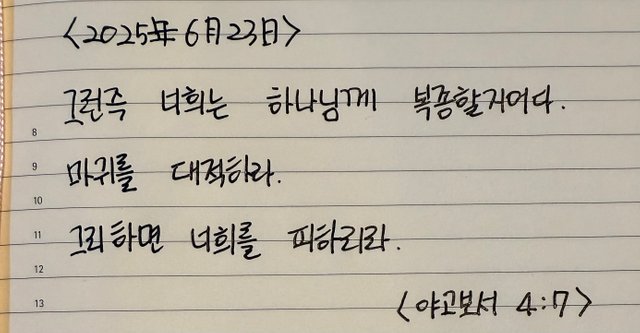 <2025年 6月 23日>
그런즉 너희는 하나님께 복종할지어다.
8
마귀를 대적하라.
9
10
그리하면 너희를 피하리라.
11
12
<야고보서 4:7>
13